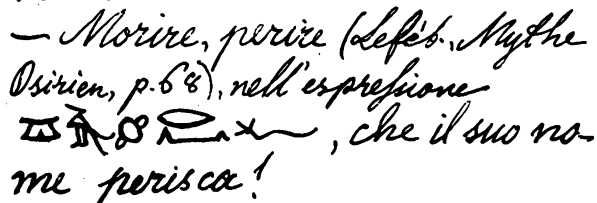 — Morire, perire (Leféb., Mythe
Osirien, p. 68), nell'espressione
, che il suo no-
me perisca!